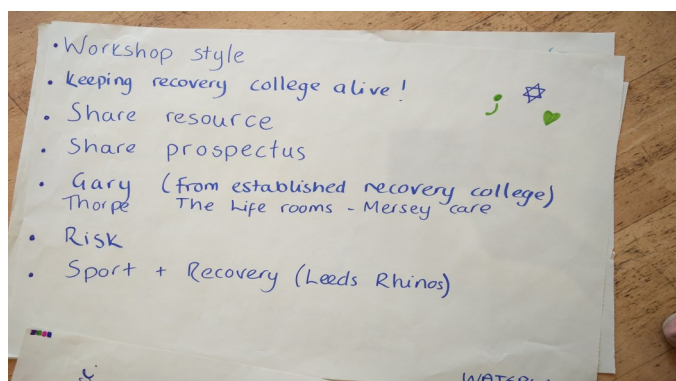 • Workshop style
• Keeping recovery college alive!
• Share resource
• Share prospectus
• Gary (from established recovery college)
Thorpe The Life rooms - Mersey care
• Risk
• Sport + Recovery (Leeds Rhinos)